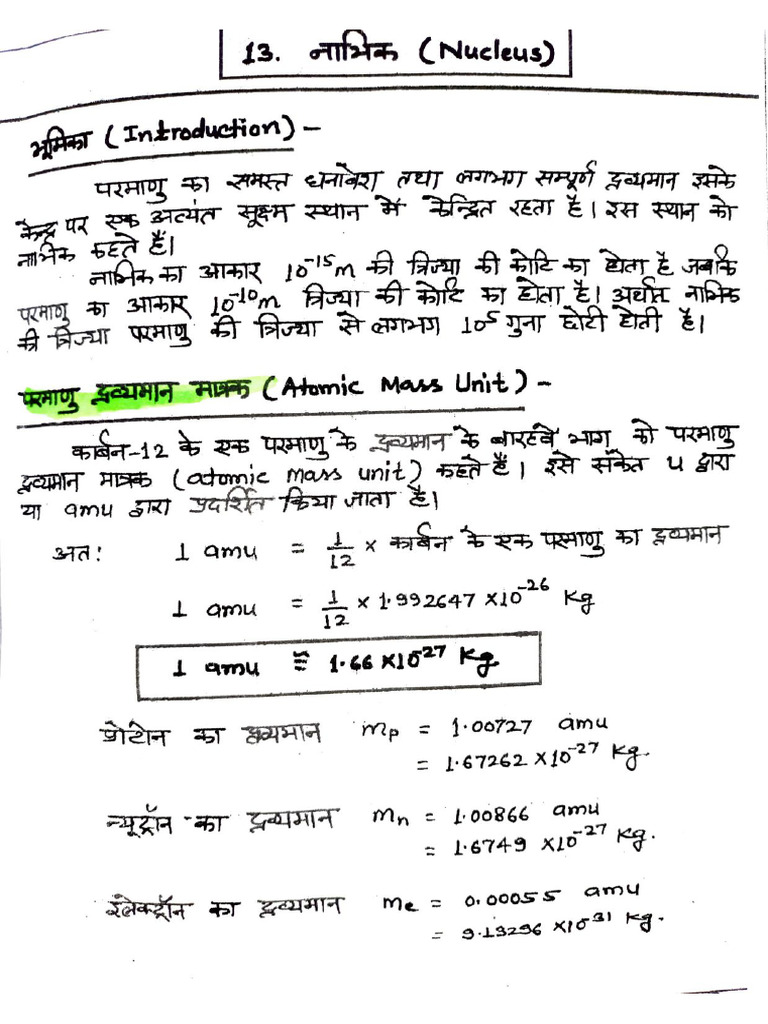 13. नाभिक (Nucleus)
भूमिका (Introduction) -
परमाणु का समस्त धनावेश तथा लगभग सम्पूर्ण द्रव्यमान इसके
केन्द्र पर एक अत्यंत सूक्ष्म स्थान में केन्द्रित रहता है। इस स्थान को
नाभिक कहते हैं।
नाभिक का आकार 10⁻¹⁵m की त्रिज्या की कोटि का होता है जबकि
परमाणु का आकार 10⁻¹⁰m त्रिज्या की कोटि का होता है। अर्थात नाभिक
की त्रिज्या परमाणु की त्रिज्या से लगभग 10⁵ गुना छोटी होती है।
परमाणु द्रव्यमान मात्रक (Atomic Mass Unit) -
कार्बन-12 के एक परमाणु के द्रव्यमान के बारहवें भाग को परमाणु
द्रव्यमान मात्रक (atomic mass unit) कहते हैं। इसे संकेत u द्वारा
या amu द्वारा प्रदर्शित किया जाता है।
अतः 1 amu = 1/12 × कार्बन के एक परमाणु का द्रव्यमान
1 amu = 1/12 × 1.992647 × 10⁻²⁶ Kg
1 amu ≅ 1.66 × 10⁻²⁷ Kg
प्रोटोन का द्रव्यमान mp = 1.00727 amu
= 1.67262 × 10⁻²⁷ Kg.
न्यूट्रॉन का द्रव्यमान mn = 1.00866 amu
= 1.6749 × 10⁻²⁷ Kg.
इलेक्ट्रॉन का द्रव्यमान me = 0.00055 amu
= 9.13296 × 10⁻³¹ Kg.